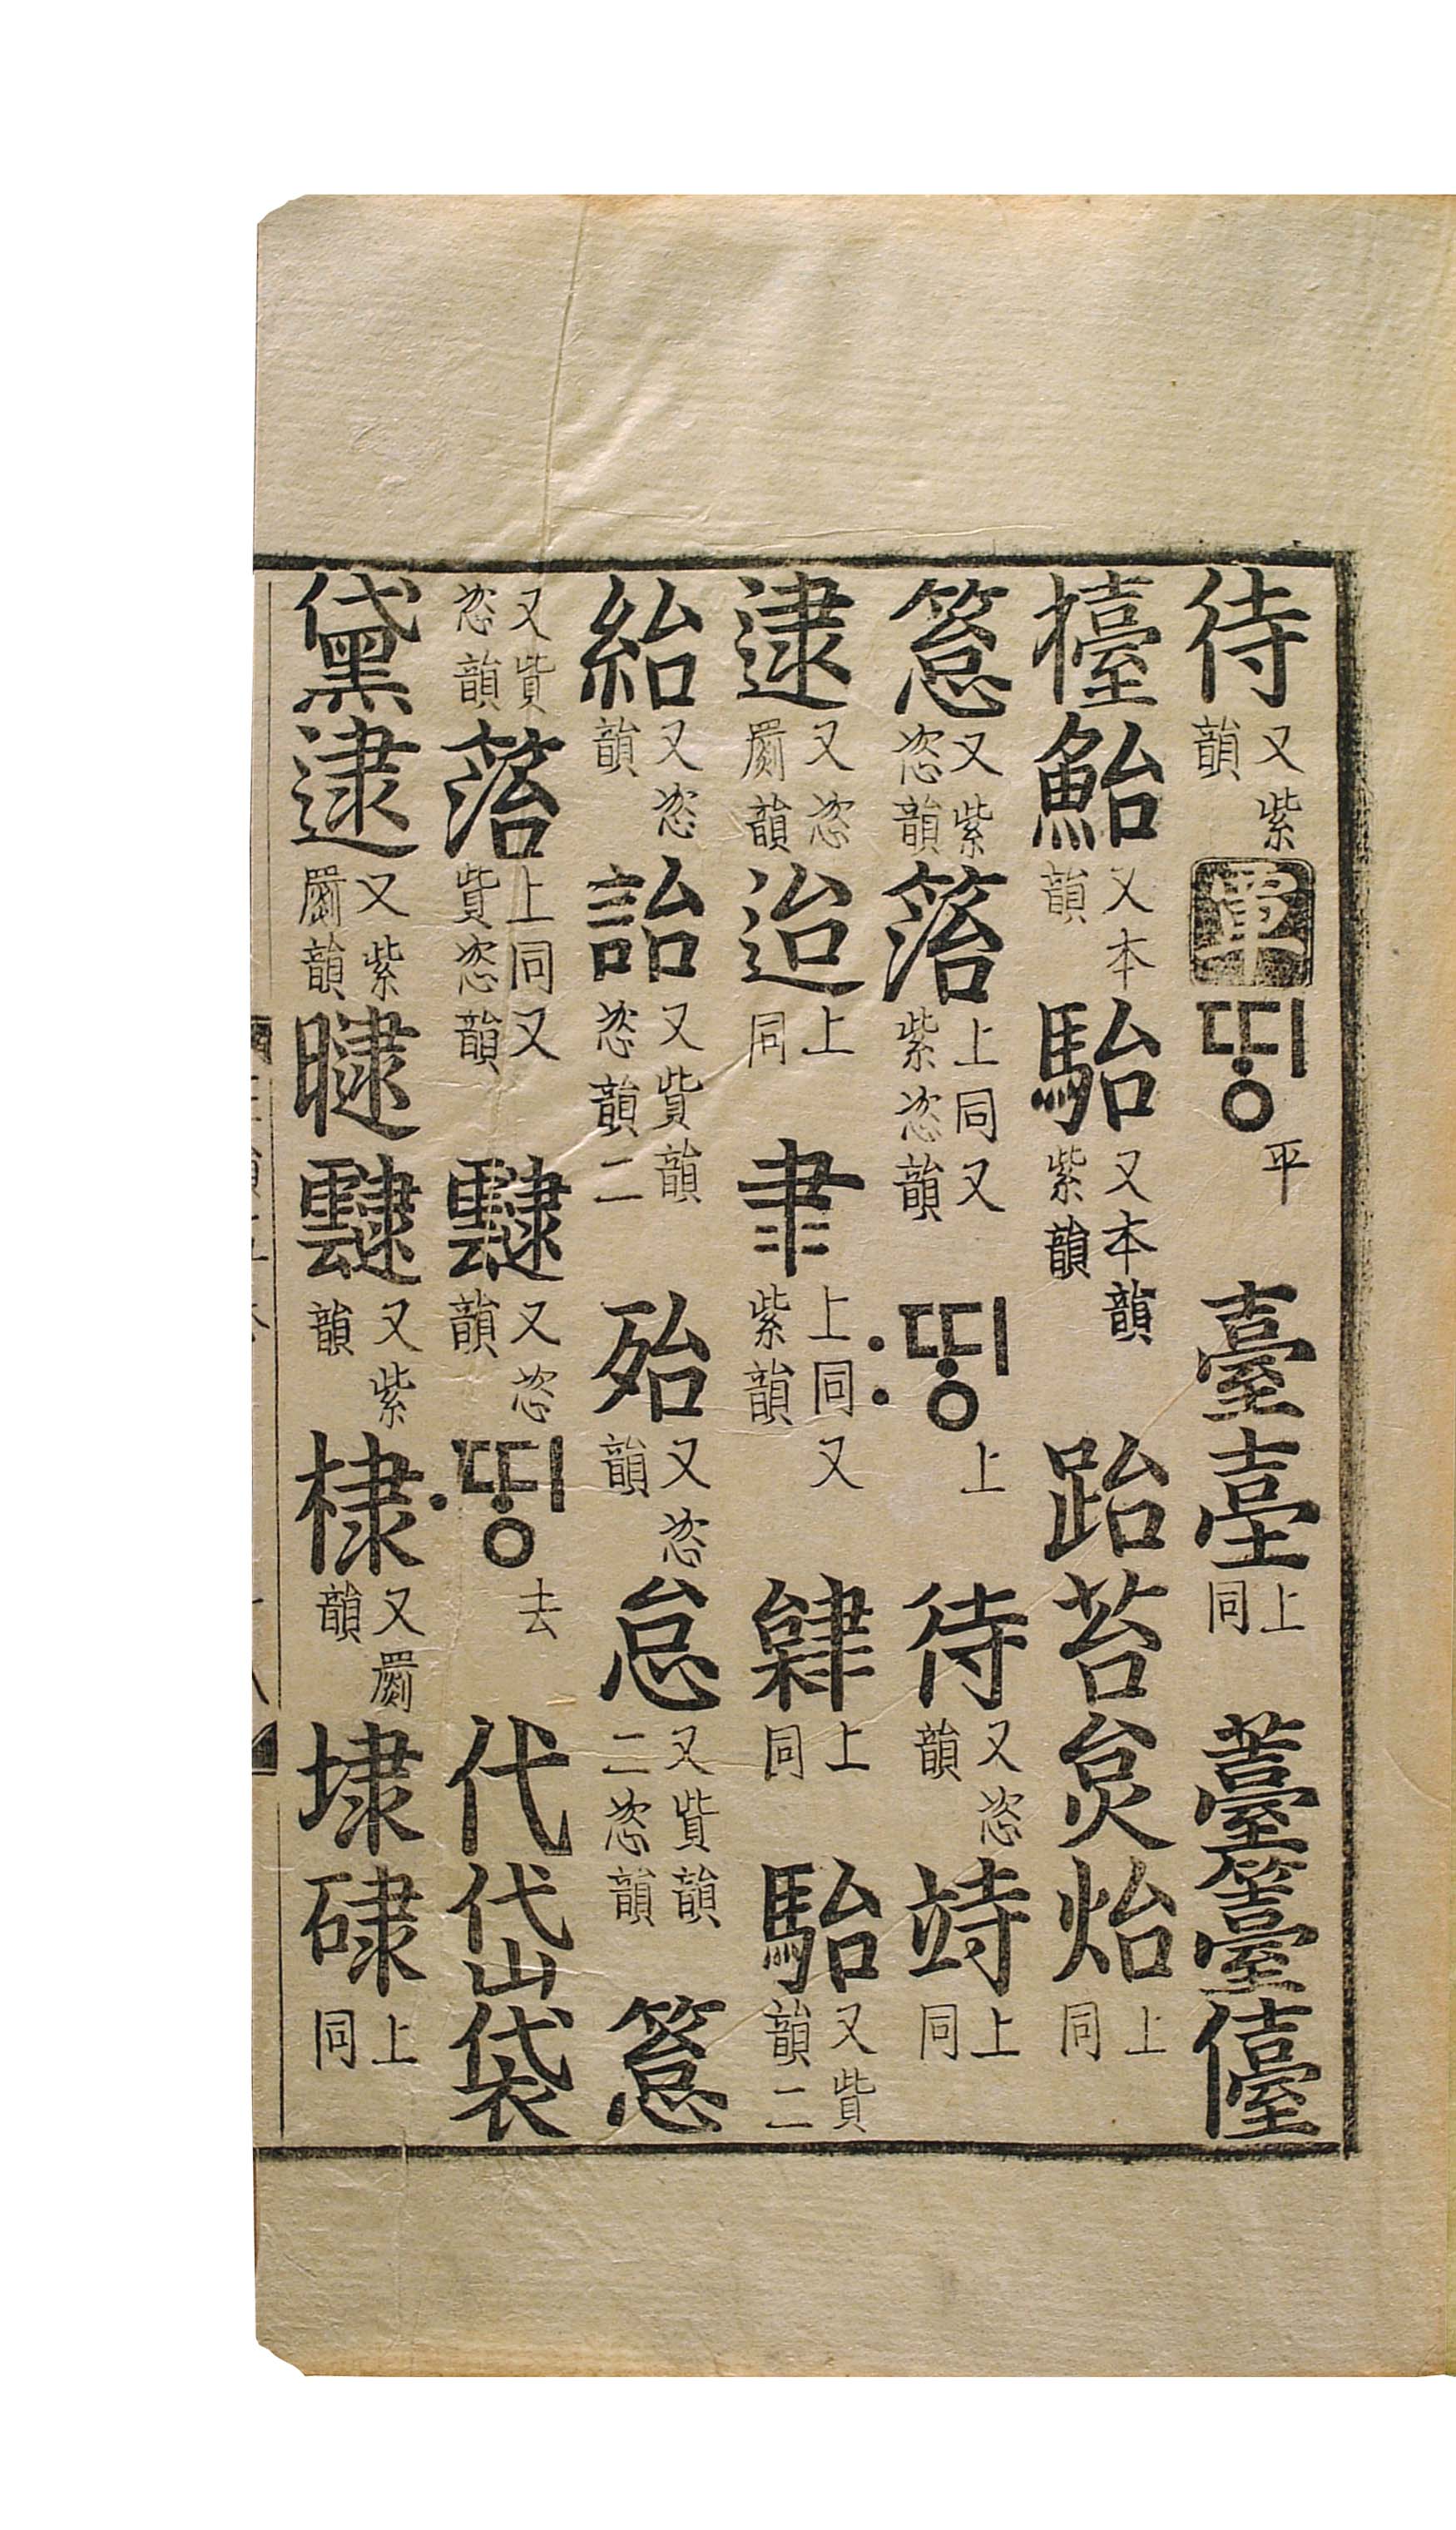 待又紫韻覃ᄄᆡᆼ平臺䑓上同薹籉儓
檯鮐又本韻駘又本韻紫韻跆苔炱炲上同
䈚又紫恣韻箈上同又紫恣韻〯ᄄᆡᆼ上待又恣韻上同
逮又恣罽韻迨上同隶上同又紫韻上同駘又貲韻二
紿又恣韻詒又貲韻恣韻二殆又恣韻怠又貲韻二恣韻䈚
又貲恣韻箈上同又貲恣韻靆又恣韻〮ᄄᆡᆼ去代岱袋
黛逮又紫罽韻曃靆又紫韻棣又罽韻埭上同